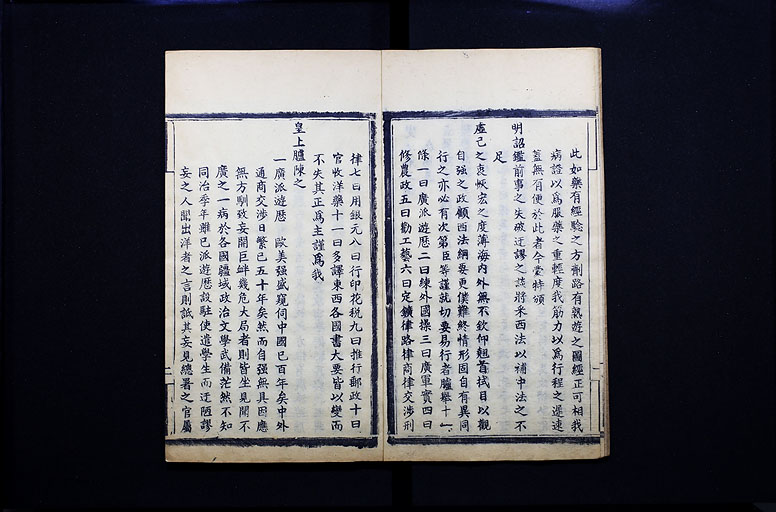 此如藥有經驗之方劑路有熟遊之圖經正可相我
病證以為服藥之重輕度我筋力以為行程之遲速
蓋無有便於此者今蒙特頒
明詔鑑前事之失破迂謬之談將采西法以補中法之不
足
虛己之衷恢宏之度薄海內外無不欽仰翹首拭目以觀
自強之政顧西法綱要更僕難終情形固自有異同
行之亦必有次第臣等謹就切要易行者臚舉十一
條一曰廣派遊歷二曰練外國操三曰廣軍實四曰
修農政五曰勸工藝六曰定鑛律路律商律交涉刑
律七曰用銀元八曰行印花稅九曰推行郵政十曰
官收洋藥十一曰多譯東西各國書大要皆以變而
不失其正為主謹為我
皇上臚陳之
一廣派遊歷 歐美強盛窺伺中國已百年矣中外
通商交涉日繁已五十年矣然而自強無具因應
無方馴致妄開巨衅幾危大局者則皆坐見聞不
廣之一病於各國疆域政治文學武備茫然不知
同治季年雖已派遊歷設駐使遣學生而迂陋謬
妄之人聞出洋者之言則詆其妄見總署之官屬